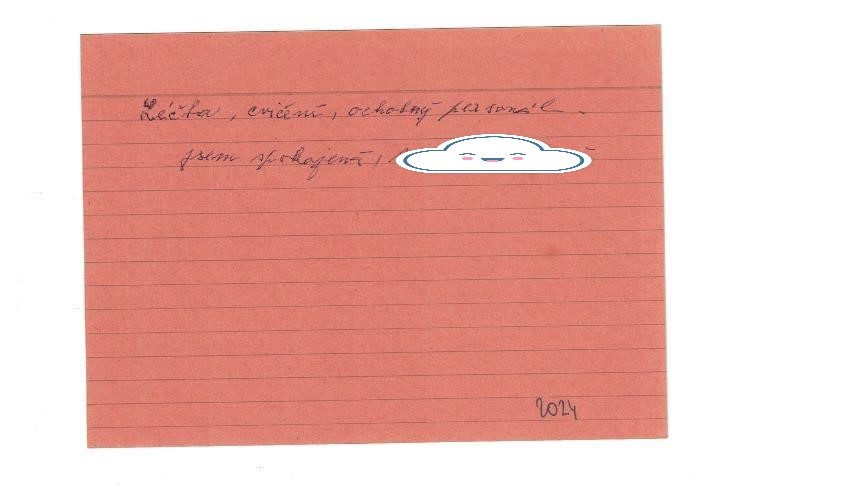 Léčba, cvičení, ochotný personál.
jsem spokojená,
2024